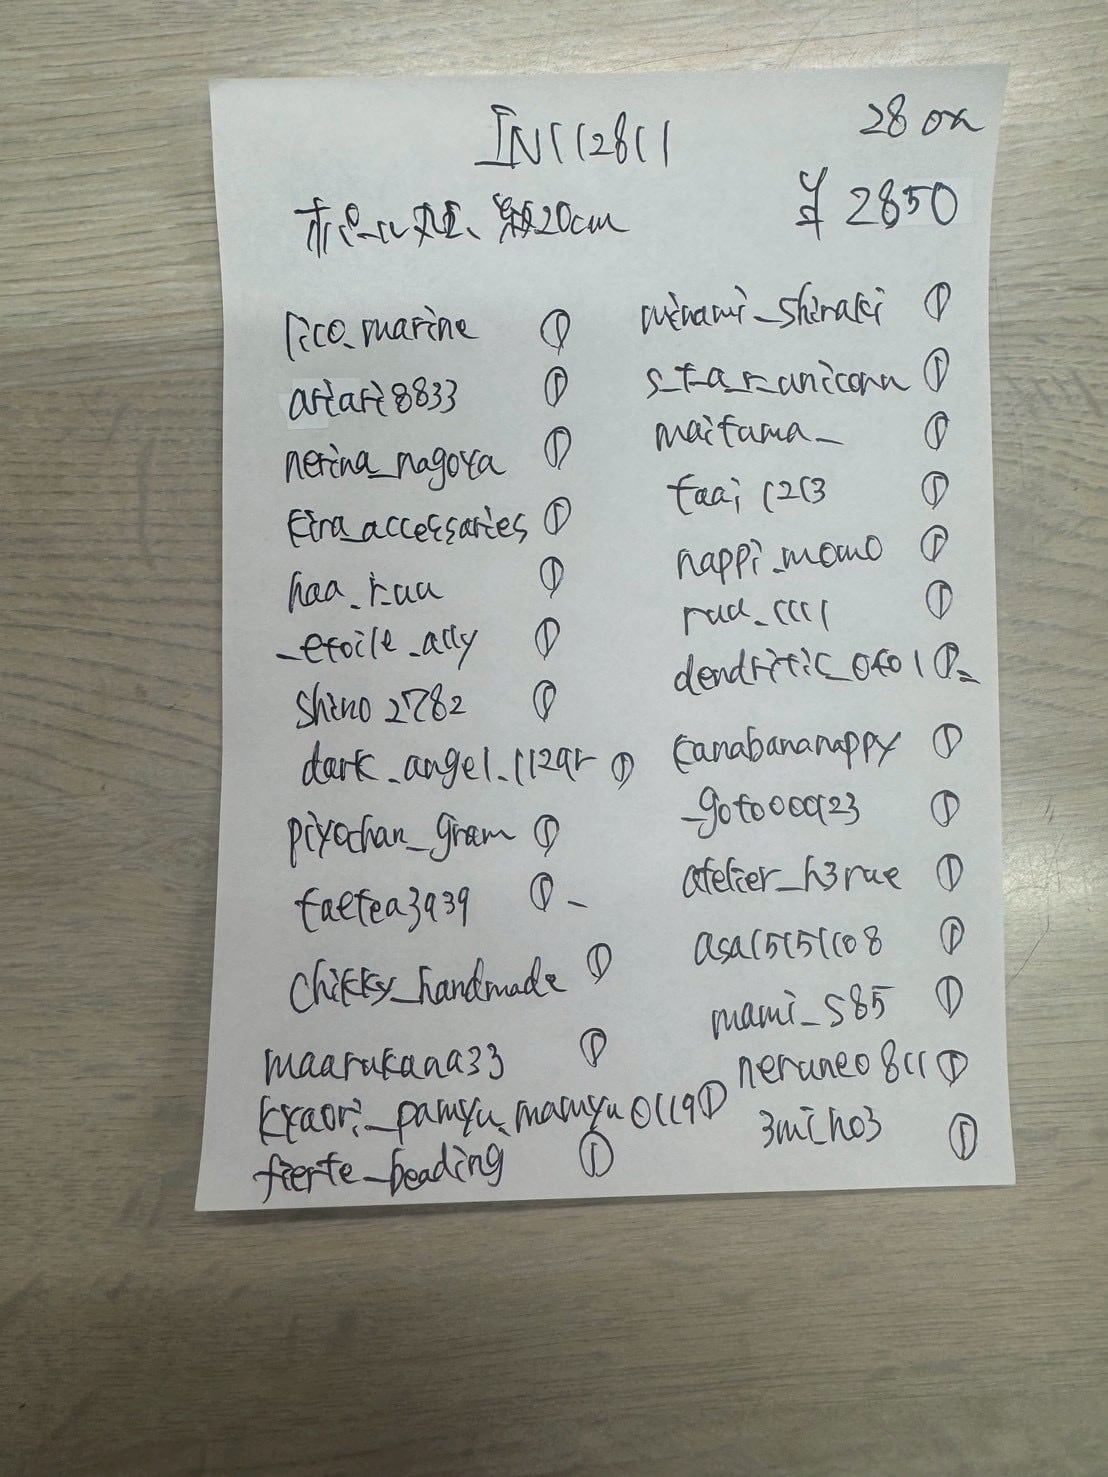 IN112811
28 on
¥ 2850
20cm
lico_marine ①
ariari8833 ①
nerina_nagoya ①
kira_accessories ①
haa_r.uu ①
_etoile_ally ①
shino2782 ①
dark_angel.1129r ①
piyochan_gram ①
taetea3939 ①
chikky_handmade ①
maarukana33 ①
kyaori_pamyu_mamyu0119 ①
fierte_beading ①
minami_shiraki ①
s_t_a_r_unicorn ①
maitama_ ①
taai1213 ①
nappi_momo ①
ruu_1111 ①
dendritic_0401 ①
kanabananappy ①
_goto000923 ①
atelier_h3rue ①
asa15151108 ①
mami_s85 ①
neruneo811 ①
3miho3 ①